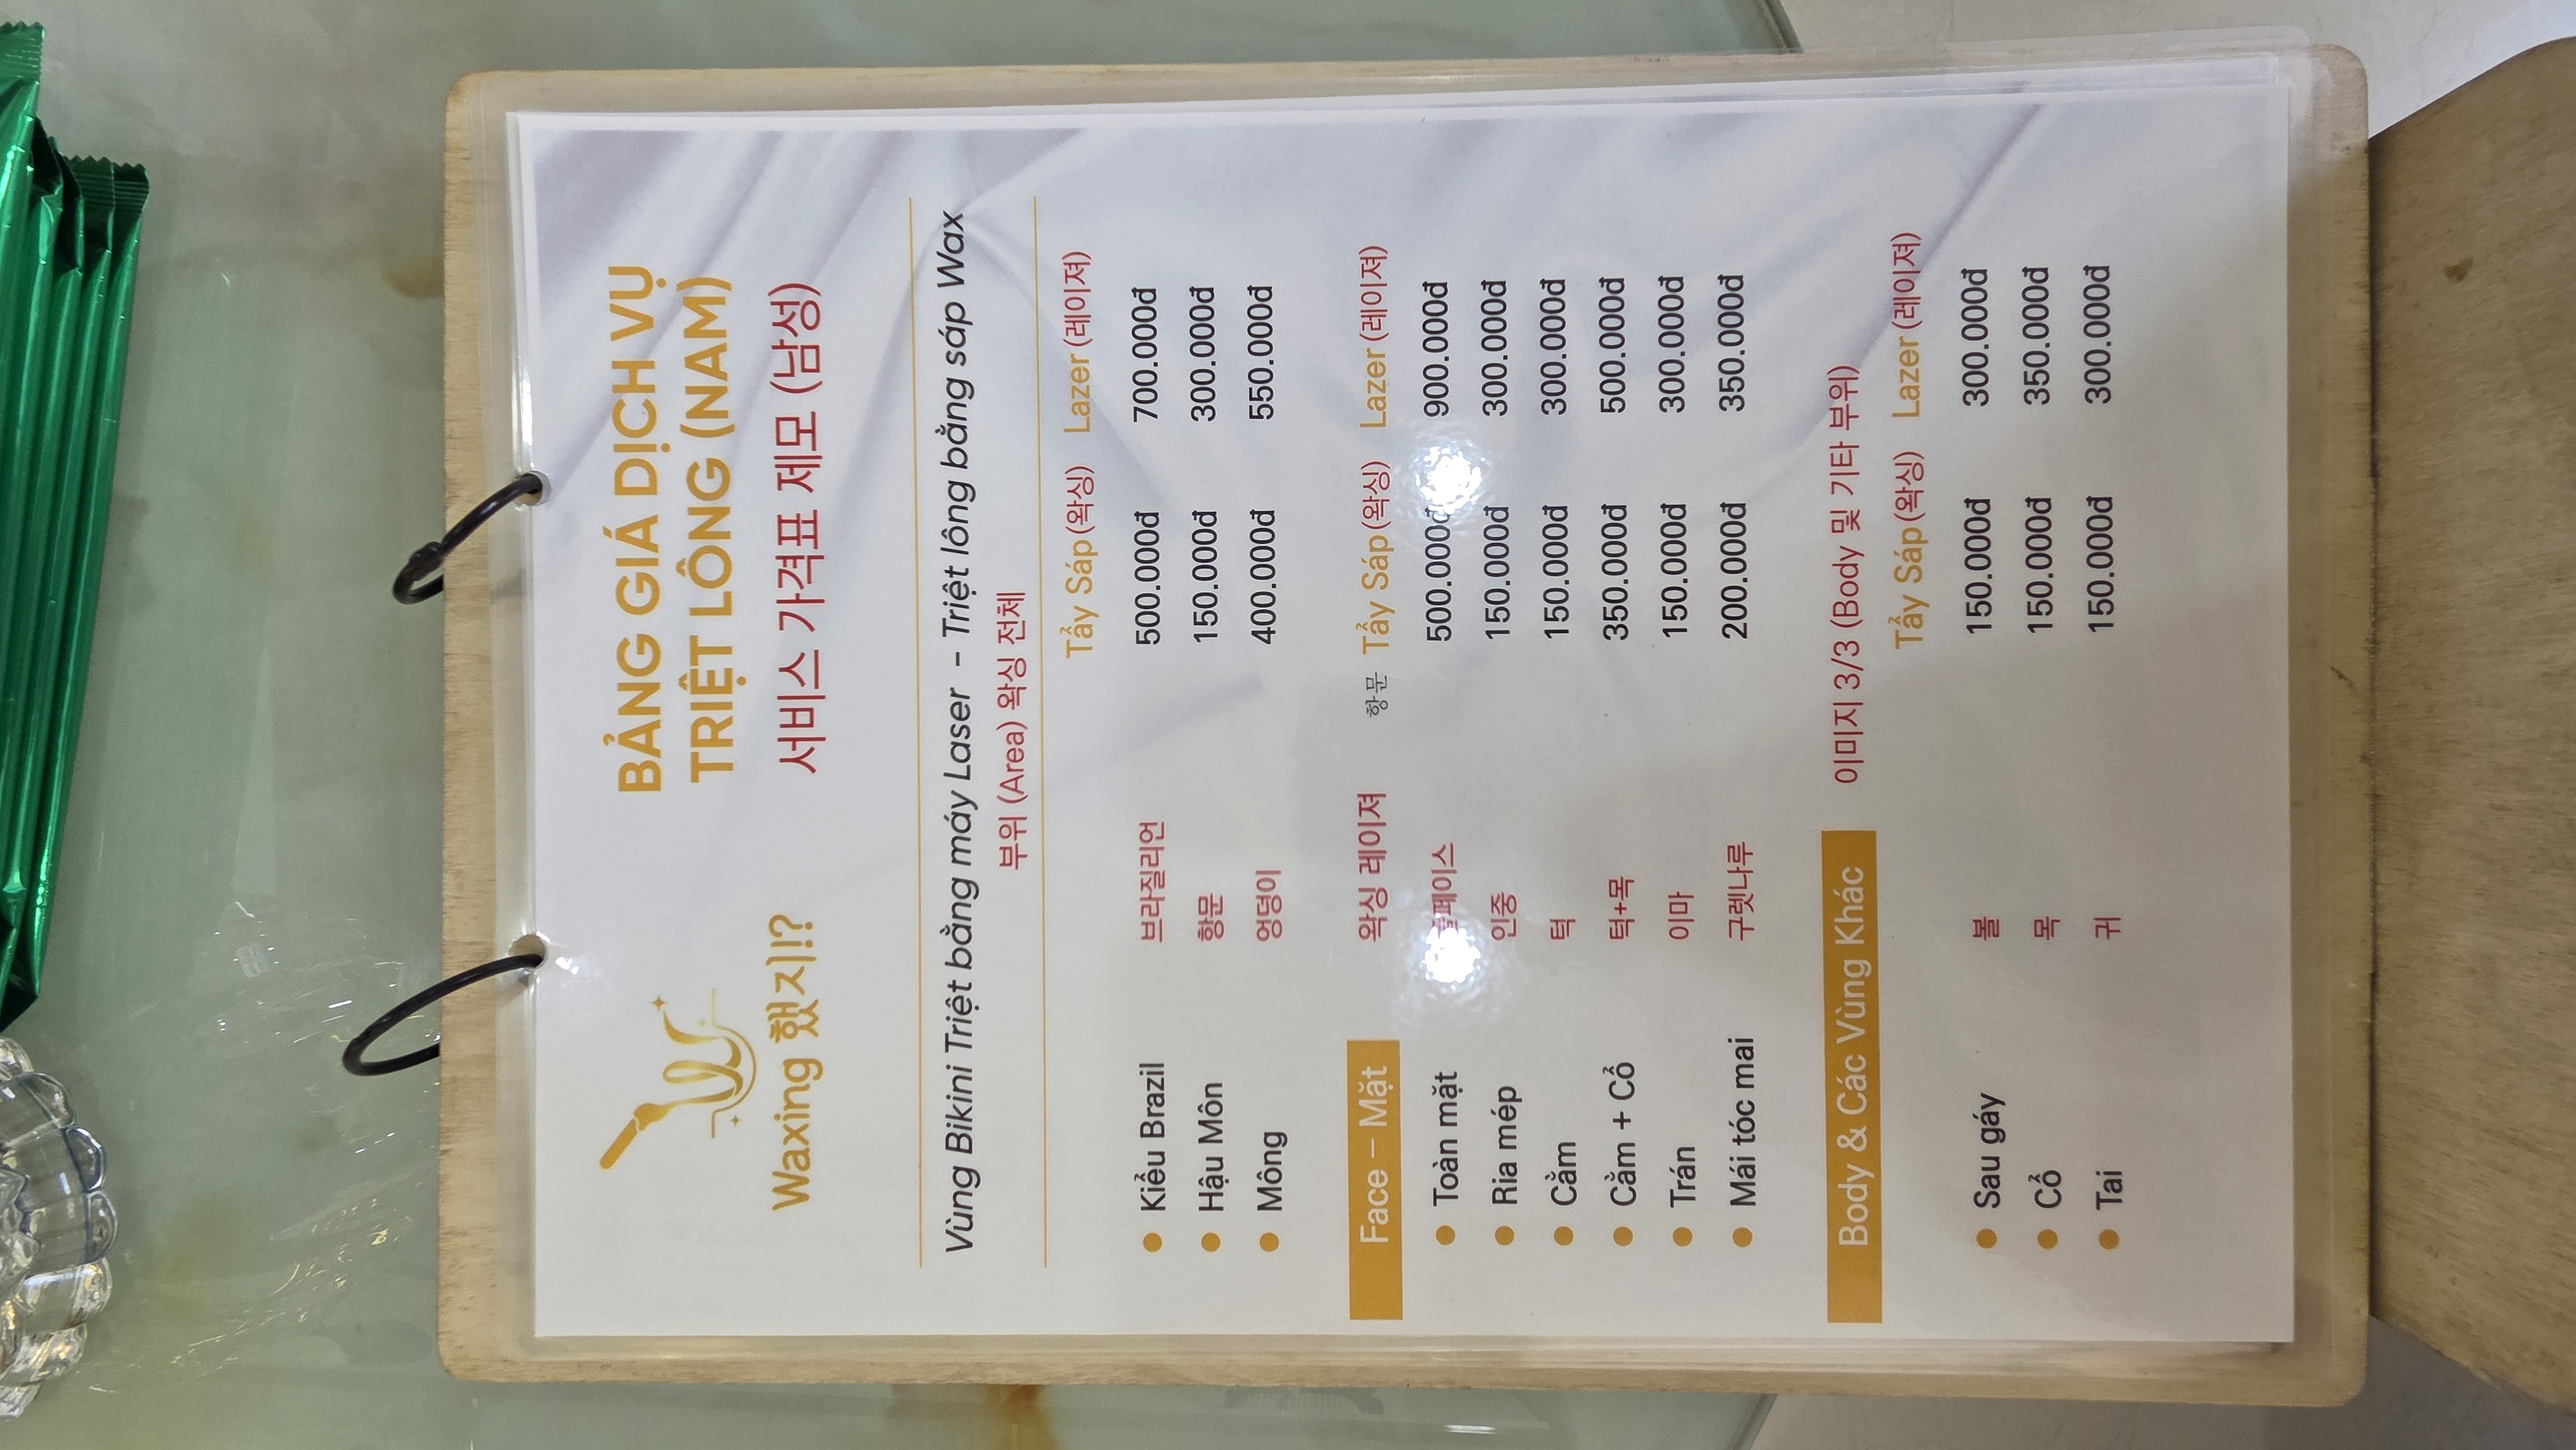 BẢNG GIÁ DỊCH VỤ
TRIỆT LÔNG (NAM)
Waxing 했지!?
서비스 가격표 제모 (남성)
Vùng Bikini Triệt bằng máy Laser - Triệt lông bằng sáp Wax
부위 (Area) 왁싱 전체
Tẩy Sáp (왁싱) Lazer (레이져)
Kiểu Brazil 브라질리언 500.000đ 700.000đ
Hậu Môn 항문 150.000đ 300.000đ
Mông 엉덩이 400.000đ 550.000đ
Face – Mặt 왁싱 레이져 항문 Tẩy Sáp (왁싱) Lazer (레이져)
Toàn mặt 풀페이스 500.000đ 900.000đ
Ria mép 인중 150.000đ 300.000đ
Cằm 턱 150.000đ 300.000đ
Cằm + Cổ 턱+목 350.000đ 500.000đ
Trán 이마 150.000đ 300.000đ
Mái tóc mai 구렛나루 200.000đ 350.000đ
Body & Các Vùng Khác 이미지 3/3 (Body 및 기타 부위)
Tẩy Sáp (왁싱) Lazer (레이져)
Sau gáy 볼 150.000đ 300.000đ
Cổ 목 150.000đ 350.000đ
Tai 귀 150.000đ 300.000đ